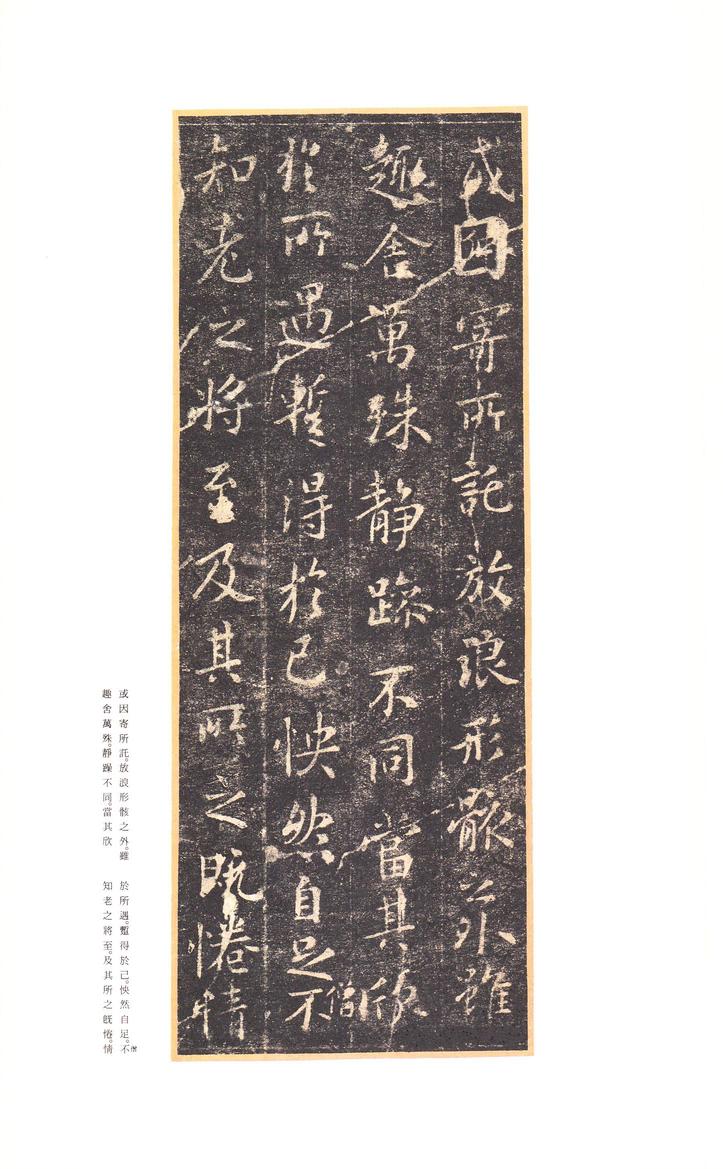 或因寄所託放浪形骸之外雖
趣舍萬殊靜躁不同當其欣
於所遇暫得於己怏然自足不
僧
知老之將至及其所之既惓情
或因寄所託。放浪形骸之外。雖
趣舍萬殊。靜躁不同。當其欣
於所遇。蹔得於己。怏然自足。不
僧
知老之將至。及其所之既惓。情